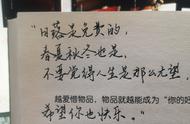 “日落是免费的，
春夏秋冬也是，
不要觉得人生是那么无望
越爱惜物品，物品就越能成为“你的好
希望你也快乐。”